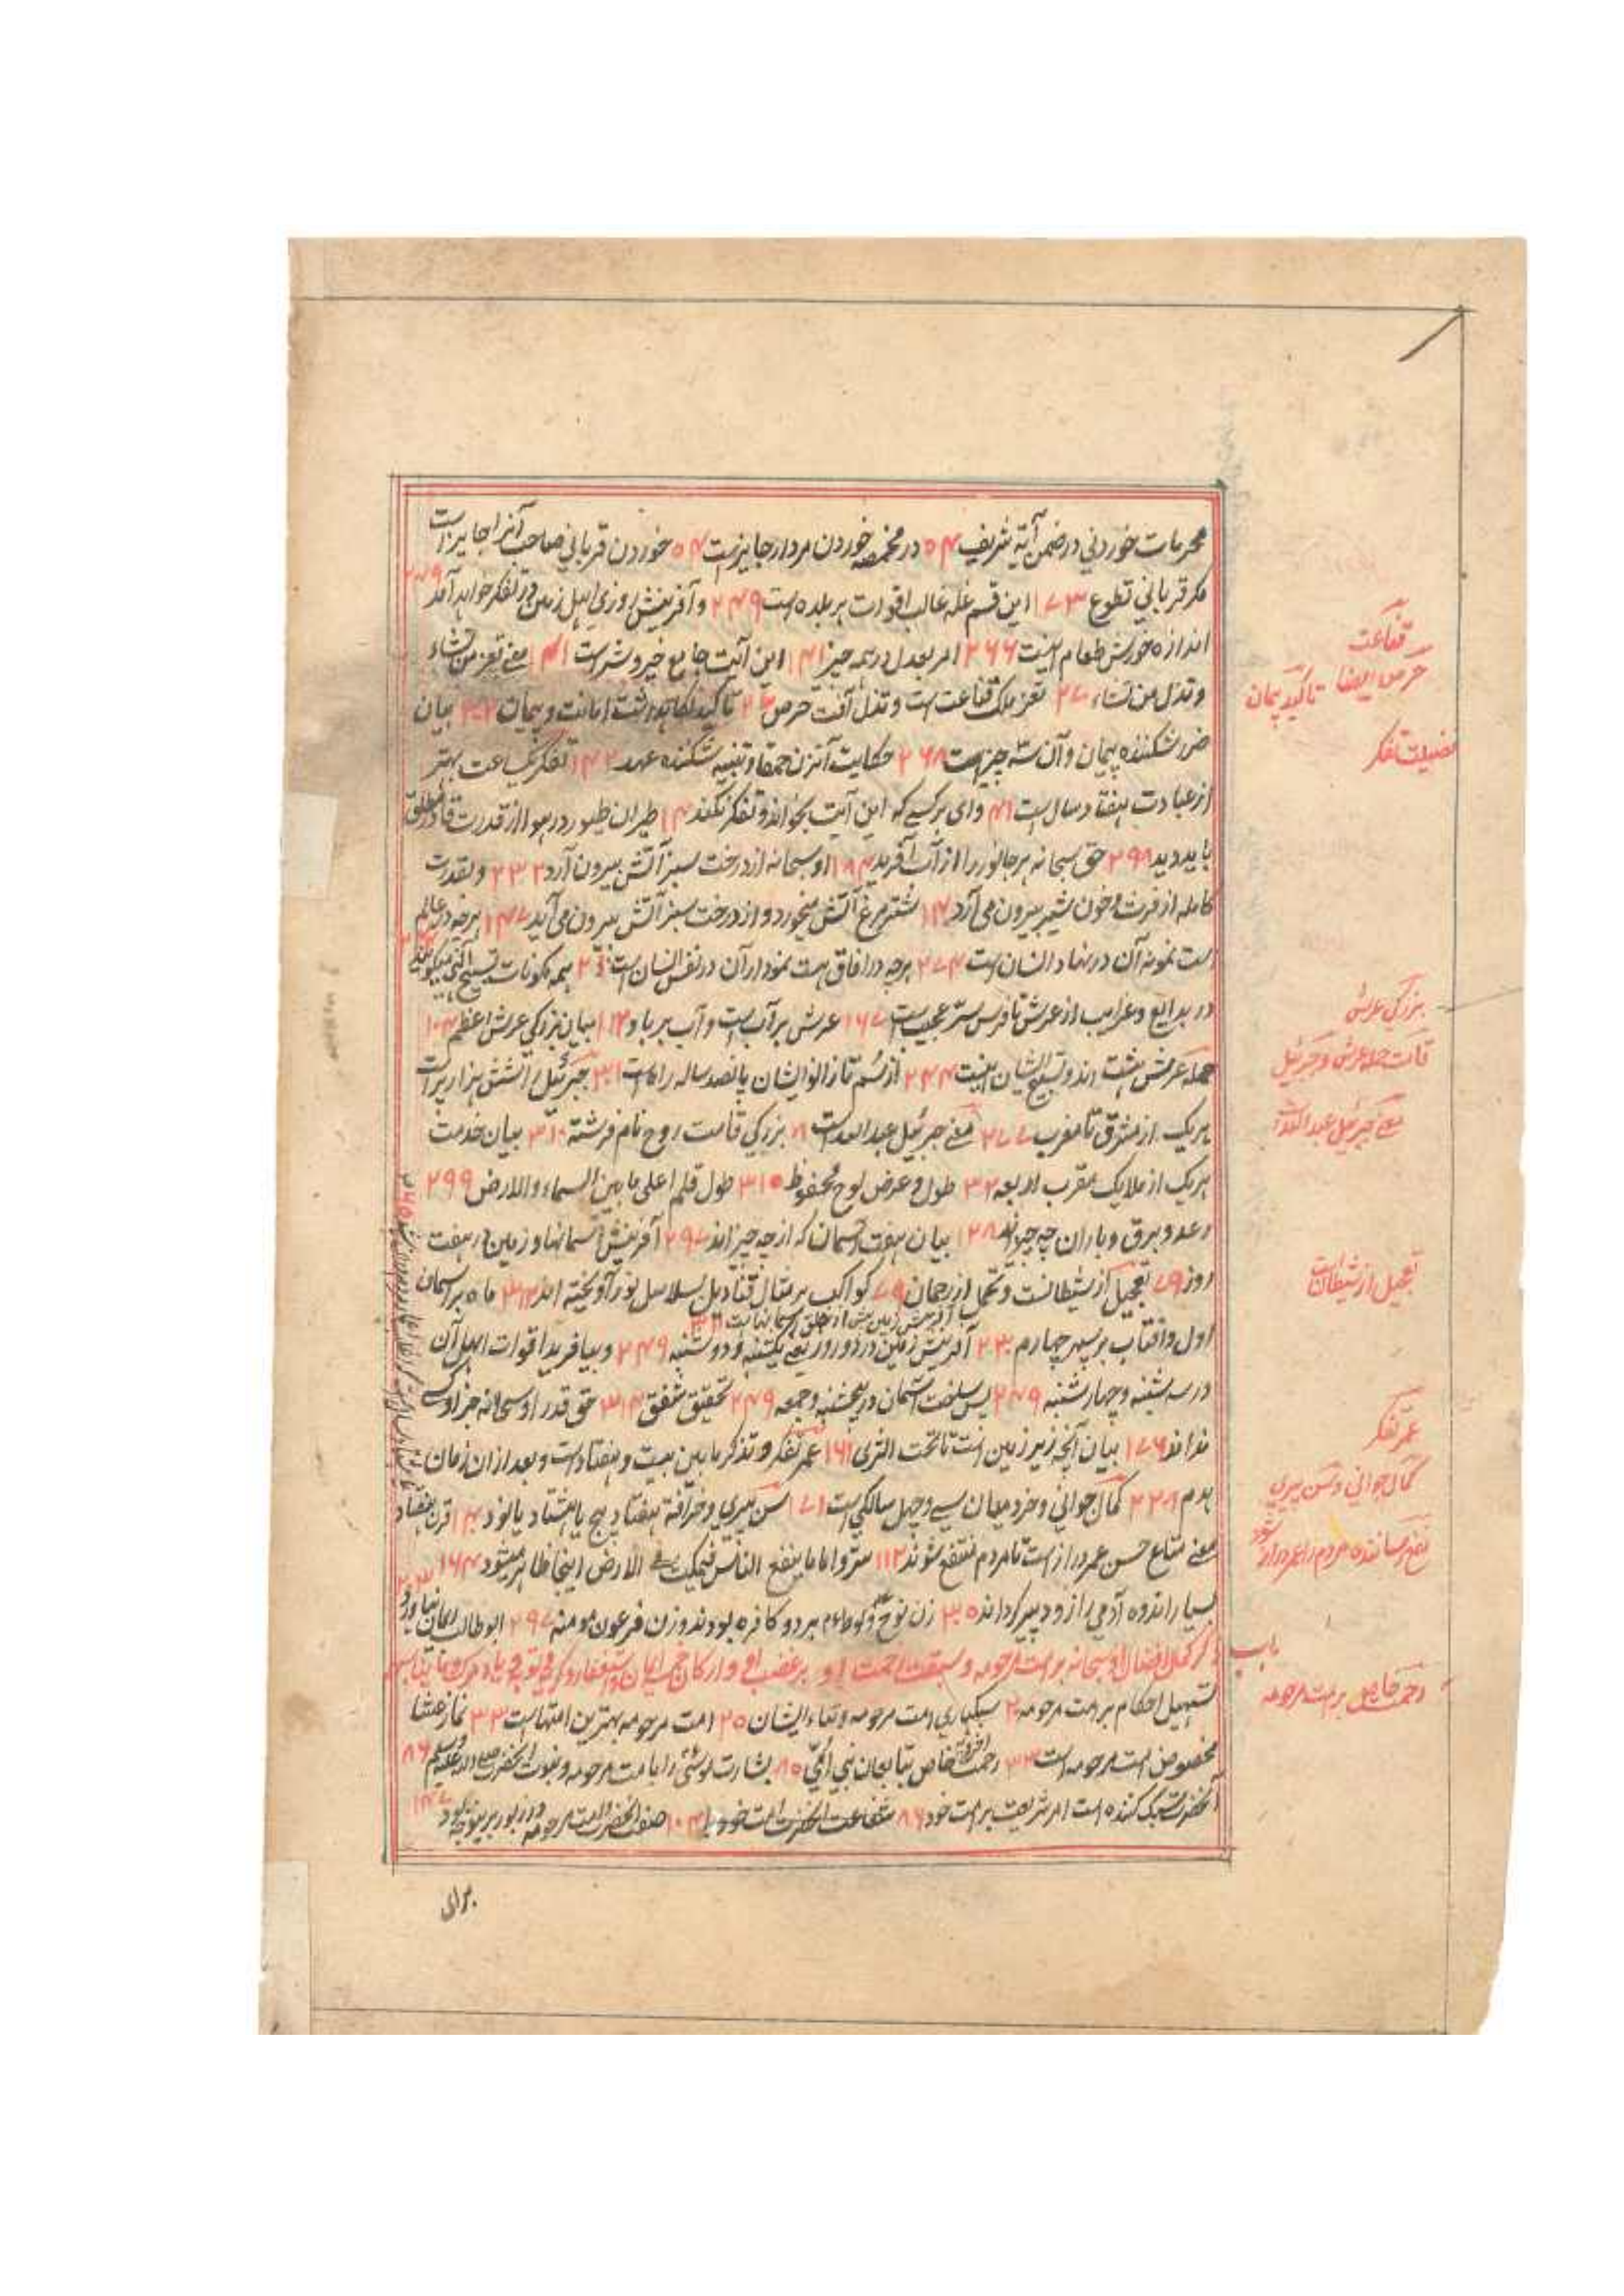 محرمات خوردنی در ضمن آیة شریف ۵۴ در مخمصه خوردن مردار جایزست ۵۴ خوردن قربانی صاحب آنرا جایز است
مکر قربانی تطوع ۱۷۳ این قسم غله غالب اقوات هر بلده است ۲۴۹ و آفرینش روزی اهل زمین در تفکر خواهد آمد ۲۴۹
اندازه خورش طعام اینست ۲۶۶ امر بعدل در همه چیز ۱۴۱ این آیت جامع خیر و شر است ۱۴۱ معنی تعز من تشاء
وتذل من تشاء ۲۷ تعز ملک قناعت است و تذل آفت حرص تاکید نکاهداشت امانت و پیمان بیان
ضرر شکننده پیمان و آن سه چیز است ۲۶۸ حکایت آنزن حمقا و تنبیه شکننده عهد ۱۴۲ تفکر یکساعت بهتر
از عبادت هفتاد سال است ۴۱ وای بر کسی که این آیت بخواند و تفکر نکند طیران طیور در هوا از قدرت قادر مطلق
باید دید ۲۹۸ حق سبحانه هر جانور را از آب آفرید ۱۸۴ او سبحانه از درخت سبز آتش بیرون آرد ۲۳۲ و بقدرت
کامله از فرث و خون شیر بیرون می آرد شترمرغ آتش میخورد و از درخت سبز آتش بیرون می آید ۱۴۷ هرچه در عالم
ست نمونه آن در نهاد انسان است ۲۷۴ هرچه در افاق هست نمودار آن در نفس انسان است همه مکونات تسبیح الهی میکویند
در بدایع و غرایب از عرش تا فرش سر عجیب است ۱۶۷ عرش بر آب است و آب بر باد ۱۲۰ بیان بزرکی عرش اعظم ۱۰۴
حمله عرش هشت اند و تسبیح ایشان اینست ۲۴۴ از سم تا زانو ایشان پانصد ساله راه است ۳۰۱ جبرئیل را شش هزار پر است
هر یک از مشرق تا مغرب ۲۷۷ معنی جبرئیل عبدالله است ۸ بزرکی قامت روح نام فرشته ۳۱۰ بیان خدمت
هر یک از ملایک مقرب اربعه ۳۲ طول و عرض لوح محفوظ ۳۱۵ طول قلم اعلی ما بین السماء والارض ۲۹۹
رعد و برق و باران چه چیزاند ۱۲۸ بیان هفت آسمان که از چه چیز اند ۲۹۷ آفرینش آسمانها و زمین در هفت
روز ۷۹ تعجیل از شیطانست و تحمل از رحمان ۷۹ کواکب بر مثال قنادیل بسلاسل نور آویخته اند ۳۱۲ ماه بر آسمان
آفرینش زمین پیش از خلق آسمانهاست
اول و افتاب بر سپهر چهارم ۲۳۰ آفرینش زمین در دو روز یعنی یکشنبه و دوشنبه ۲۴۹ و بیافرید اقوات اهل آن
در سه شنبه و چهارشنبه ۲۴۹ پس ساخت آسمان در پنجشنبه و جمعه ۲۴۹ تحقیق شفق ۳۱۴ حق قدر او سبحانه جز او کسی
نداند ۱۷۶ بیان آنچه زیر زمین است تا تحت الثری ۱۶۱ عمر تفکر و تذکر ما بین بیست و هفتاد است و بعد از ان زمان
هرم ۲۲۸ کمال جوانی و خرد میان سی و چهل سالکی است ۱۷۱ سن پیری و خرافة هفتاد پنج یا هشتاد یا نود قرن هفتاد
معنی متاع حسن عمر دراز است تا مردم منتفع شوند ۱۱۲ سر واما ما ینفع الناس فیمکث فی الارض اینجا ظاهر میشود ۱۶۴
بسیار اندوه آدمی را زود پیر کرداند ۳۰۵ زن نوح و لوط هر دو کافره بودند و زن فرعون مومنه ۲۹۷ ابوطالب ایمان نیاورد
ذکر کمال افضال او سبحانه بر امت مرحومه و سبقت رحمت او بر غضب او
تسهیل احکام بر امت مرحومه ۲۰ سبکباری امت مرحومه و ثناء ایشان ۲۵ امت مرحومه بهترین امتهاست ۳۳ نماز عشا
مخصوص امت مرحومه است ۳۳ رحمت خاص بتابعان نبی امی ۸۵ بشارت موسی را بامت مرحومه و نعوت انحضرت صلی الله علیه وسلم ۸۶
آنحضرت سبک کننده است امر شریعت بر امت خود ۸۶ شفاعت آنحضرت امت خود را ۱۰۴ صفت آنحضرت و امت مرحومه در زبور
برای
قناعت
حرص ایضا تاکید پیمان
فضیلت تفکر
بزرکی عرش
قامت حمله عرش و جبرئیل
معنی جبرئیل عبدالله است
تعجیل از شیطانست
عمر تفکر
کمال جوانی و سن پیری
نفع رساننده مردم را عمر دراز شود
باب
رحمت خاص بر امت مرحومه